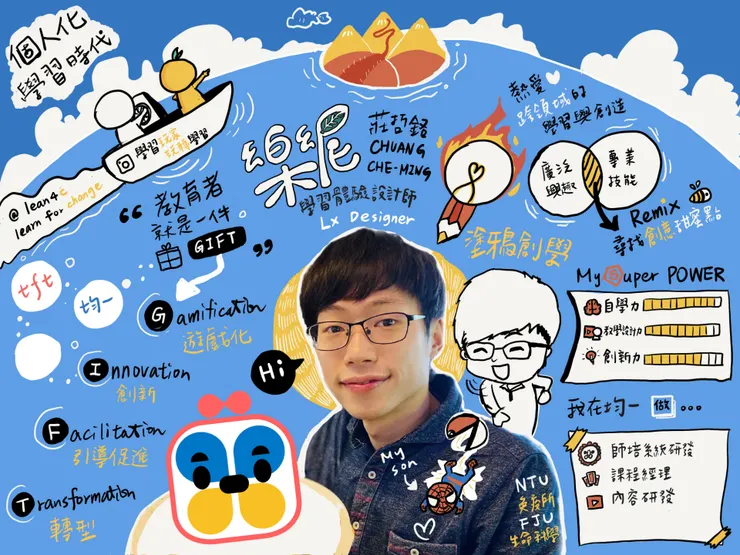 個人化
學習時代
學習玩家
玩轉學習
@ lean4c
learn for change
樂妮
莊哲銘
CHUANG
CHE-MING
學習體驗設計師
Lx Designer
熱愛
跨領域的
學習與創造
塗鴉創學
廣泛
興趣
專業
技能
Remix
尋找創意甜蜜點
“ 教育者
就是一件
GIFT ”
tft
均一
Gamification
遊戲化
Innovation
創新
Facilitation
引導促進
Transformation
轉型
Hi
My
son
NTU
免疫所
FJU
生命科學
My Super POWER
自學力
教學設計力
創新力
我在均一 做 ...
師培系統研發
課程經理
內容研發